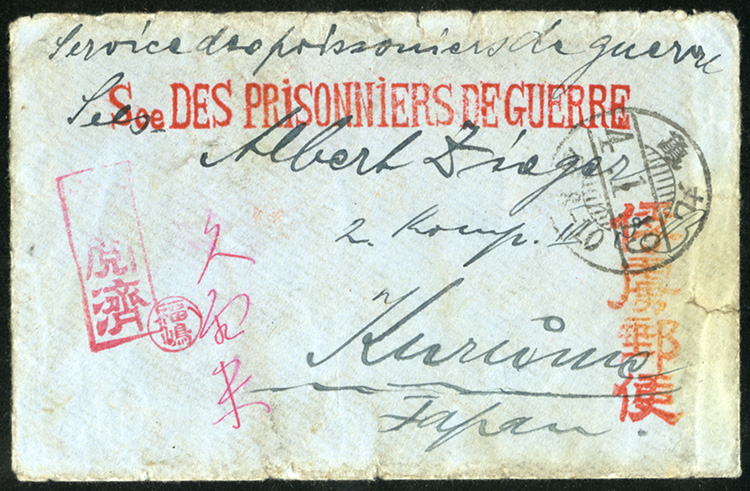 Service des poissoniers de guerre
Soe DES PRISONNIERS DE GUERRE
Sees.
Albert Zieger
2. Komp.
Japan.
久留米
閲濟
福嶋
俘虜郵便